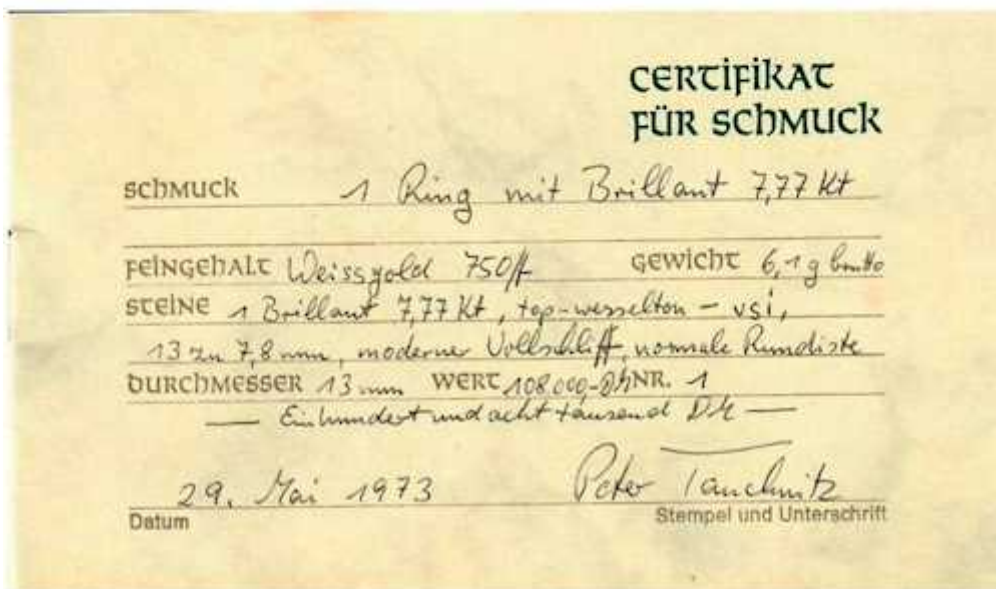 CERTIFIKAT
FÜR SCHMUCK
SCHMUCK 1 Ring mit Brillant 7,77 Kt
FEINGEHALT Weissgold 750/f GEWICHT 6,1 g brutto
STEINE 1 Brillant 7,77 Kt, top-wesselton - vsi,
13 zu 7,8 mm, moderner Vollschliff, normale Rundiste
DURCHMESSER 13 mm WERT 108.000,-DM NR. 1
— Einhundertundacht tausend DM —
29. Mai 1973 Peter Tauchnitz
Datum Stempel und Unterschrift